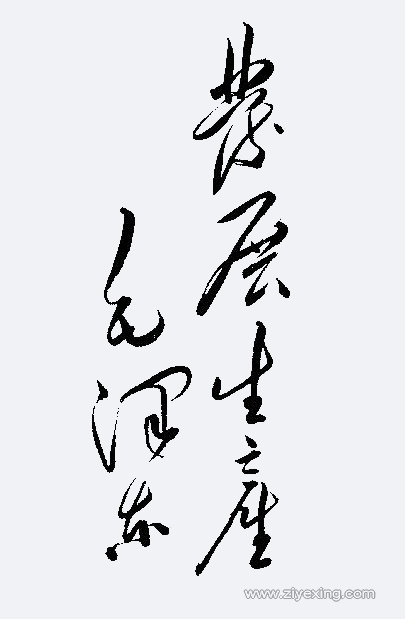 發展生產
毛泽东
www.ziyexing.com